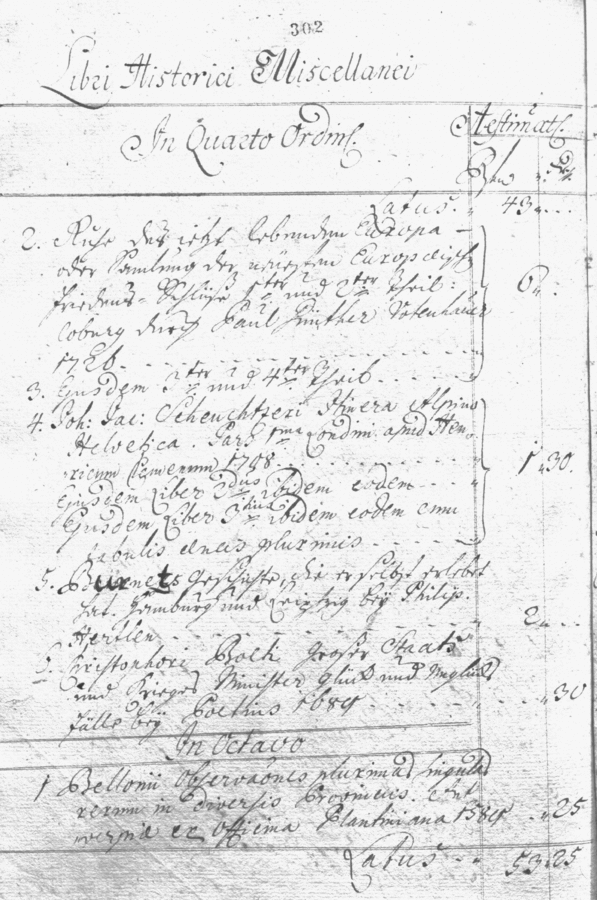 302
Libri Historici Miscellanei
In Quarto Ordinis.
Æstimat.
Latus. 43
2. Ruhe des ietzt lebenden Europa
oder Samlung der neuesten Europäisch
Friedens-Schlüße 1ster und 2ter Theil:
Coburg durch Paul Günther
1726
3. Ejusdem 3ter und 4ter Theil
6
4. Joh: Jac: Scheuchtzeri Itinera Alpina
Helvetica. Pars 1ma Londini apud Hen-
ricum 1708
Ejusdem Liber 2dus ibidem eodem
Ejusdem Liber 3tius ibidem eodem cum
tabulis æneis plurimis
1 30
5. Burnets Geschichte, die er selbst erlebet
hat. Hamburg und Leipzig bey Philip.
Hertlen
2
6. Boeth. Großer Staats
und Krieges Minister Glück und Unglücks
Fälle bey 1689
30
In Octavo
1 Bellonii Observationes plurimas singular
rerum in diversis Provinciis. Ant
werpiæ ex officina Plantiniana 1589
25
Latus 53 25